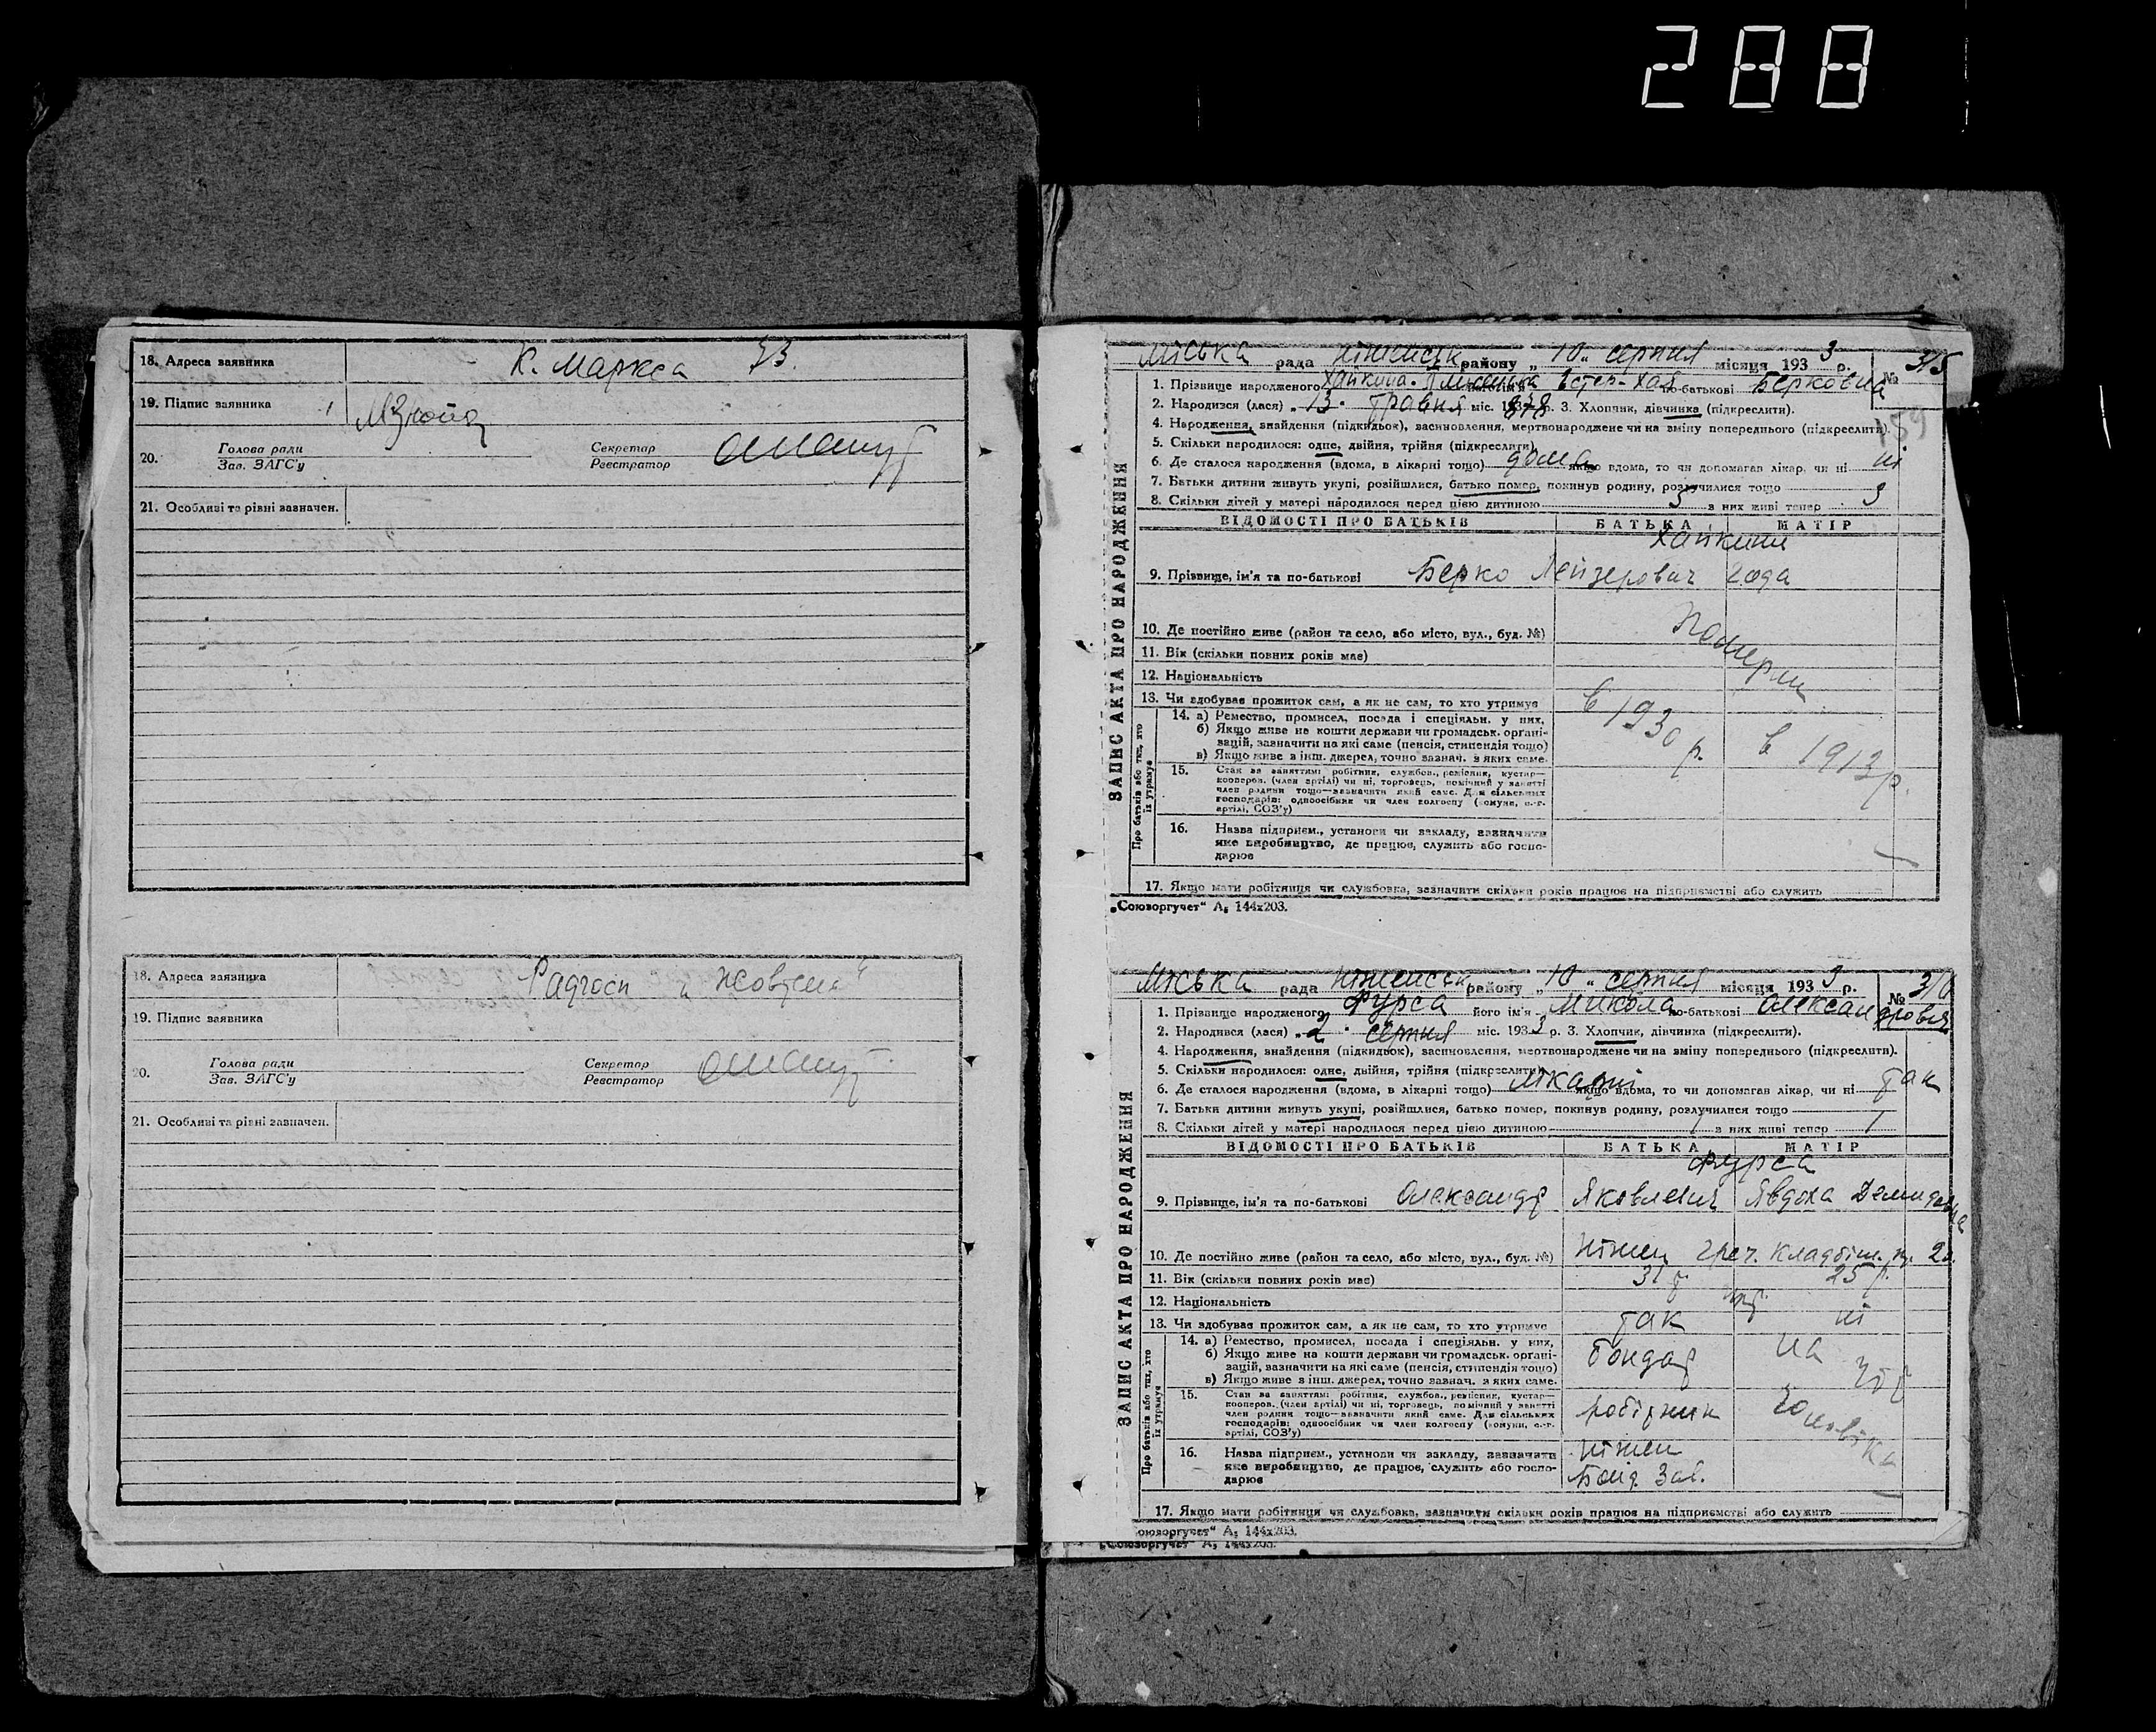 288
18. Адреса заявника К. Маркса 33.
19. Підпис заявника
20. Голова ради Зав. ЗАГС'у Секретар Реєстратор
21. Особливі та рівні зазначен.
18. Адреса заявника Радгосп Жовтень
19. Підпис заявника
20. Голова ради Зав. ЗАГС'у Секретар Реєстратор
21. Особливі та рівні зазначен.
ЗАПИС АКТА ПРО НАРОДЖЕННЯ
Міська рада Ніженськ району „10" серпня місяця 1933 р. № 315
1. Прізвище народженого Хайкина його ім'я Естер-Хая по-батькові Берковна
2. Народився (лася) „13" травня міс. 3. Хлопчик, дівчинка (підкреслити).
4. Народження, знайдення (підкидьок), засиновлення, мертвонароджене чи на зміну попереднього (підкреслити).
159
5. Скільки народилося: одне, двійня, трійня (підкреслити)
6. Де сталося народження (вдома, в лікарні тощо) дома якщо вдома, то чи допомагав лікар, чи ні ні
7. Батьки дитини живуть укупі, розійшлися, батько помер, покинув родину, розлучилися тощо
8. Скільки дітей у матері народилося перед цією дитиною 3 з них живі тепер 3
ВІДОМОСТІ ПРО БАТЬКІВ БАТЬКА МАТІР
Хайкини
9. Прізвище, ім'я та по-батькові Берко Лейзерович Года
10. Де постійно живе (район та село, або місто, вул., буд. №) Померли
11. Вік (скільки повних років має)
12. Національність
13. Чи здобуває прожиток сам, а як не сам, то хто утримує в 1930 р. в 1913 р.
Про батьків або тих, хто їх утримує
14. а) Ремество, промисел, посада і спеціяльн. у них,
б) Якщо живе на кошти держави чи громадськ. органі-
зацій, зазначити на які саме (пенсія, стипендія тощо)
в) Якщо живе з інш. джерел, точно зазнач. з яких саме.
15. Стан за заняттям: робітник, службов., ремісник, кустар—
кооперов. (член артілі) чи ні, торговець, помічний у занятті
член родини тощо—зазначити який саме. Для сільських
господарів: одноосібник чи член колгоспу (комуни, с.-г.
артілі, СОЗ'у)
16. Назва підприєм., установи чи закладу, зазначити
яке виробництво, де працює, служить або госпо-
дарює
17. Якщо мати робітниця чи службовка, зазначити скільки років працює на підприємстві або служить
„Союзоргучет" А5 144х203.
ЗАПИС АКТА ПРО НАРОДЖЕННЯ
Міська рада Ніженськ району „10" серпня місяця 1933 р. № 316
1. Прізвище народженого Фурса його ім'я Микола по-батькові Олександрович
2. Народився (лася) „2" серпня міс. 1933 р. 3. Хлопчик, дівчинка (підкреслити).
4. Народження, знайдення (підкидьок), засиновлення, мертвонароджене чи на зміну попереднього (підкреслити).
5. Скільки народилося: одне, двійня, трійня (підкреслити)
6. Де сталося народження (вдома, в лікарні тощо) лікарні якщо вдома, то чи допомагав лікар, чи ні так
7. Батьки дитини живуть укупі, розійшлися, батько помер, покинув родину, розлучилися тощо
8. Скільки дітей у матері народилося перед цією дитиною 1 з них живі тепер 1
ВІДОМОСТІ ПРО БАТЬКІВ БАТЬКА МАТІР
Фурса
9. Прізвище, ім'я та по-батькові Олександр Яковлевич Явдоха Демидовна
10. Де постійно живе (район та село, або місто, вул., буд. №) Ніжен греч. кладбіщ.
11. Вік (скільки повних років має) 31 р. 25 р.
12. Національність укр.
13. Чи здобуває прожиток сам, а як не сам, то хто утримує так ні
Про батьків або тих, хто їх утримує
14. а) Ремество, промисел, посада і спеціяльн. у них,
б) Якщо живе на кошти держави чи громадськ. органі-
зацій, зазначити на які саме (пенсія, стипендія тощо)
в) Якщо живе з інш. джерел, точно зазнач. з яких саме.
бондар на
15. Стан за заняттям: робітник, службов., ремісник, кустар—
кооперов. (член артілі) чи ні, торговець, помічний у занятті
член родини тощо—зазначити який саме. Для сільських
господарів: одноосібник чи член колгоспу (комуни, с.-г.
артілі, СОЗ'у)
робітник чоловіка
16. Назва підприєм., установи чи закладу, зазначити
яке виробництво, де працює, служить або госпо-
дарює
Ніжен
Бонд. Зав.
17. Якщо мати робітниця чи службовка, зазначити скільки років працює на підприємстві або служить
оюзоргучет" А5 144х203.
„Союзоргучет" А5 144х203.